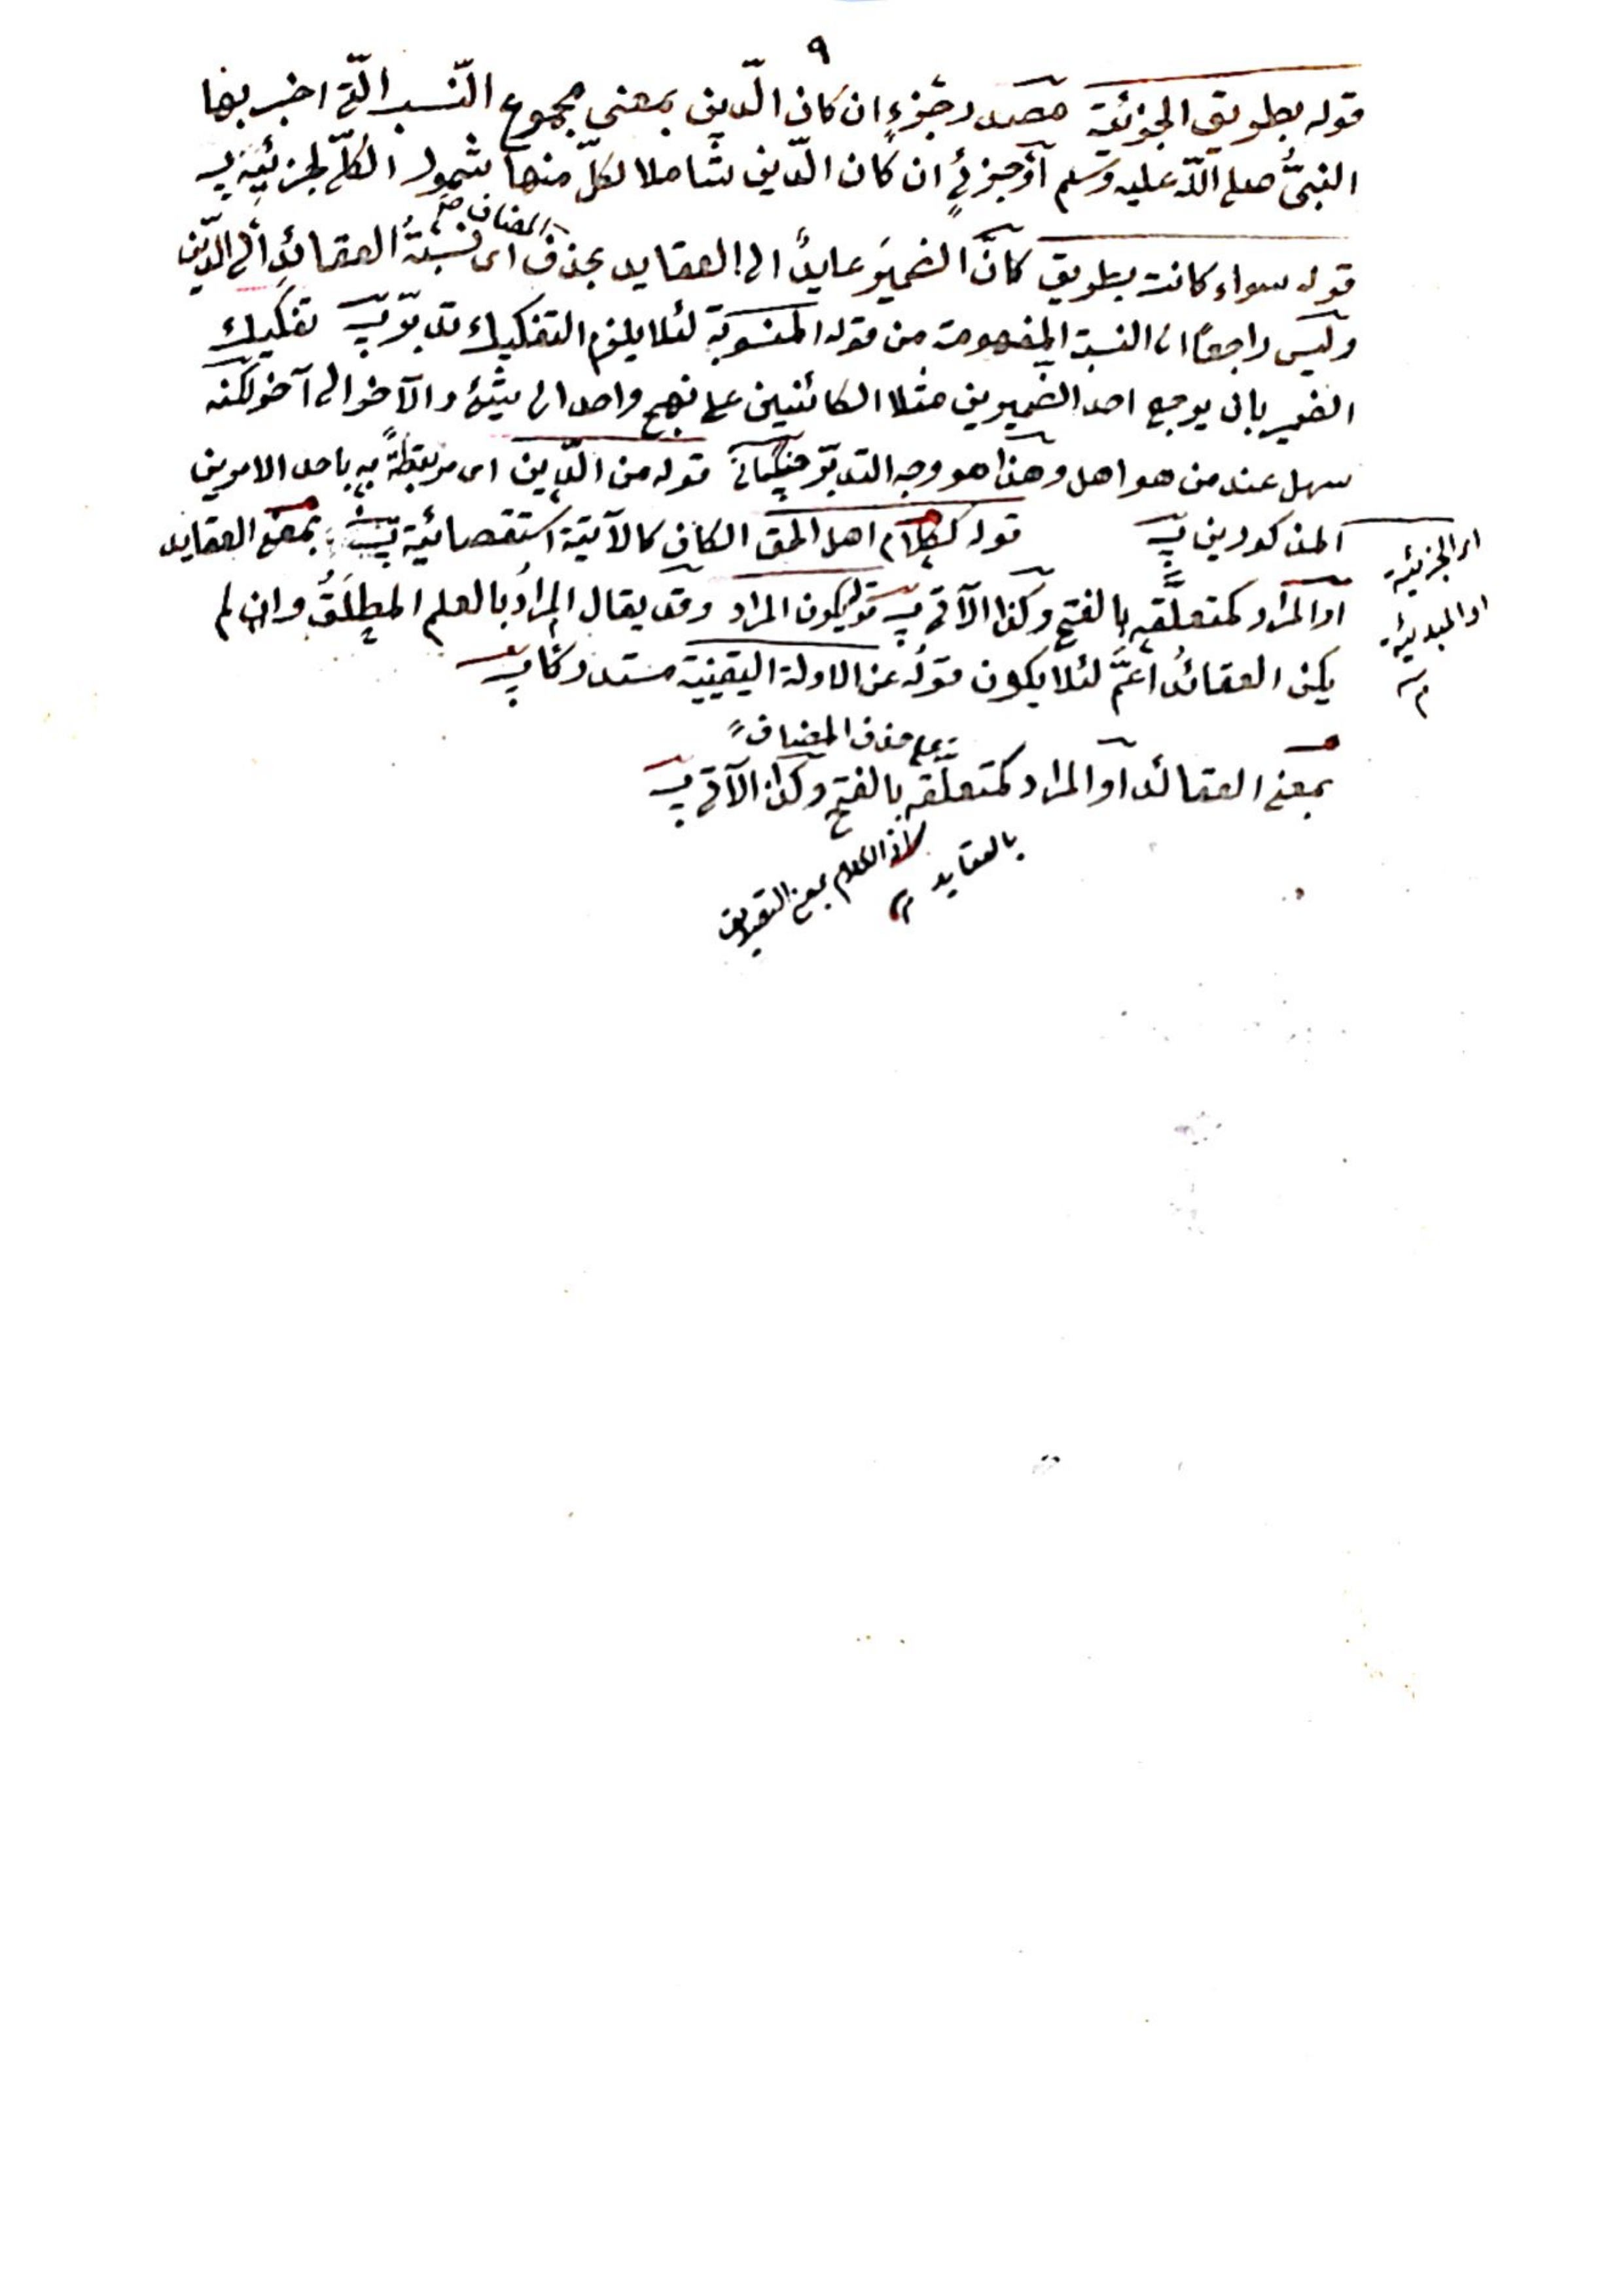 ٩
قوله بطريق الجزئية مصدر جزءٍ ان كان الدّين بمعنى مجموع النّسب الّتى اخبر بها
النبىُّ صلى اللّه عليه وسلم أو جزئىٍ ان كان الدّين شاملا لكلّ منها شمول الكلّى لجزئيّته
المضاف صح
قوله سواء كانت بطريق كانَّ الضميرَ عايدٌ الى العقايد بحذف اى نسبةُ العقائدِ الى الدّين
وليس راجعًا الى النسبة المفهومة من قوله المنسوبة لئلا يلزم التفكيك تدبّر تفكيك
الضمير بان يرجع احد الضميرين مثلا الكائنين على نهج واحد الى شئ والآخر الى آخر لكنه
سهل عند من هو اهل وهذا هو وجه التدبّر قوله من الدّين اى مرتبطةً به باحد الامرين
المذكورين قوله ككلام اهل الحق الكاف كالآتية استقصائية بمعنى العقايد
اى الجزئية
او المبدئية
أو المراد كمتعلَّقه بالفتح وكذا الآتى قوله يكون المراد وقد يقال المرادُ بالعلم المطلَقُ وان لم
يكن العقائدُ اعمَّ لئلا يكون قوله عن الادلة اليقينية مستدركًا
على حذف المضاف
بمعنى العقائد أو المراد كمتعلَّقه بالفتح وكذا الآتى
بالعقايد
الكلام بمعنى التصديق